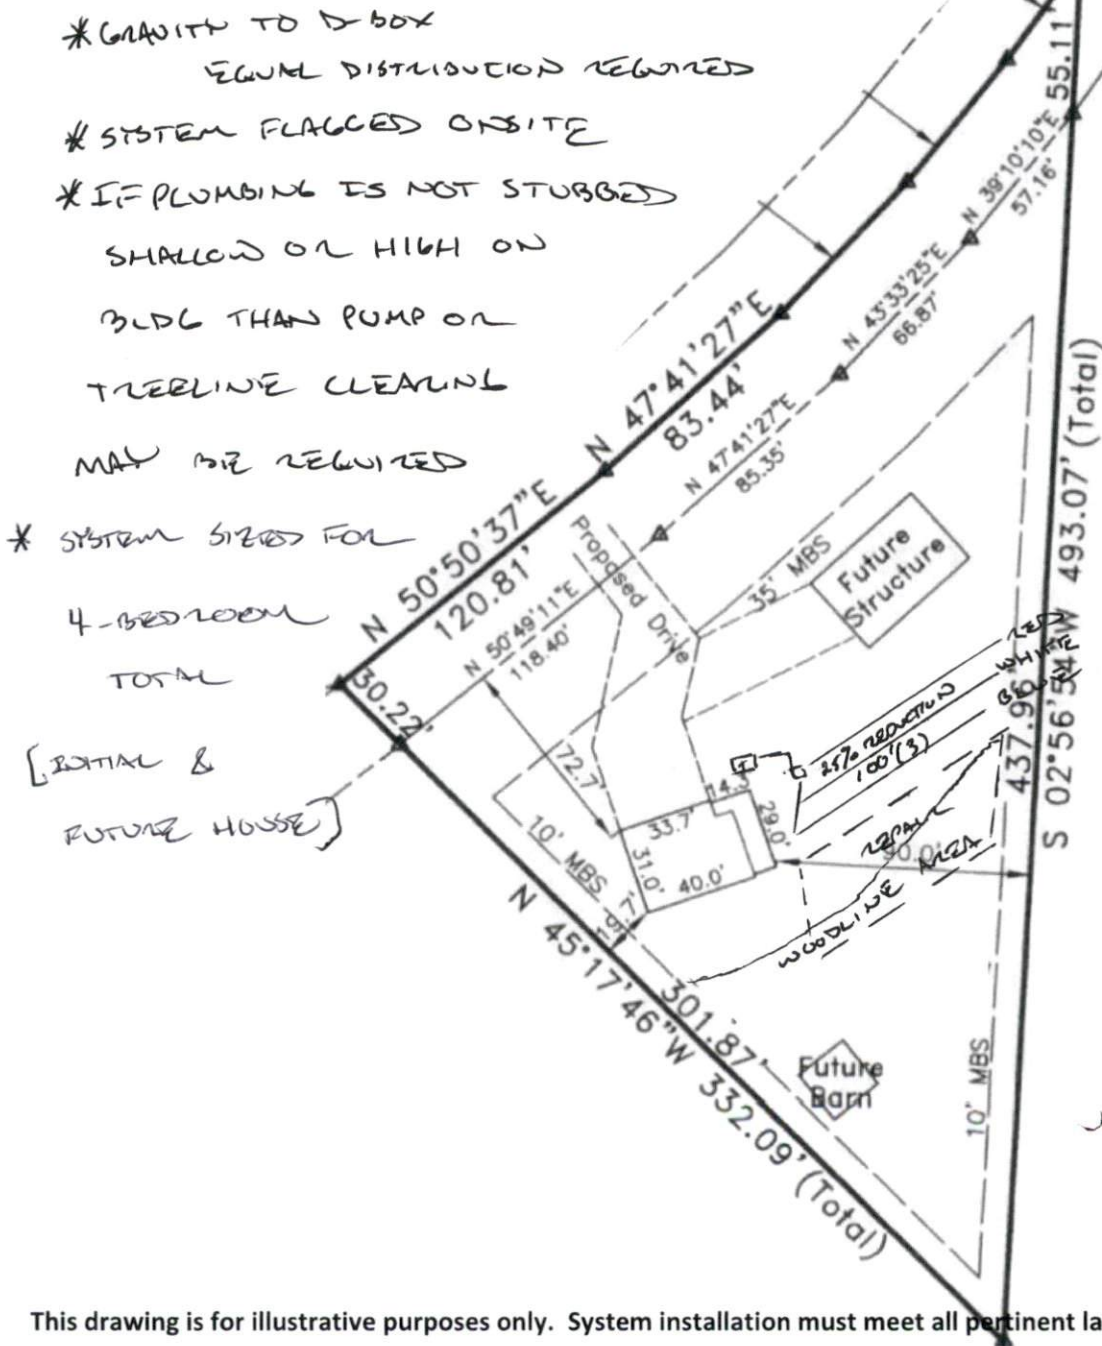 * GRAVITY TO D-BOX
EQUAL DISTRIBUTION REQUIRED
* SYSTEM FLAGGED ONSITE
* IF PLUMBING IS NOT STUBBED
SHALLOW OR HIGH ON
BLDG THAN PUMP OR
TREELINE CLEARING
MAY BE REQUIRED
* SYSTEM SIZED FOR
4-BEDROOM
TOTAL
[INITIAL &
FUTURE HOUSE]
55.11'
N 39°10'10"E
57.16'
N 43°33'25"E
66.87'
N 47°41'27"E
83.44'
N 47°41'27"E
85.35'
N 50°50'37"E
120.81'
N 50°49'11"E
118.40'
30.22'
Proposed Drive
35' MBS
Future
Structure
S 02°56'54"W 493.07' (Total)
437.96'
RED
WHITE
BLUE
25% REDUCTION
100'(3)
72.7'
14.3'
33.7'
29.0'
31.0'
40.0'
10' MBS
REPAIR
AREA
90.0'
WOODLINE
N 45°17'46"W 332.09' (Total)
301.87'
Future
Barn
10' MBS
This drawing is for illustrative purposes only. System installation must meet all pertinent la